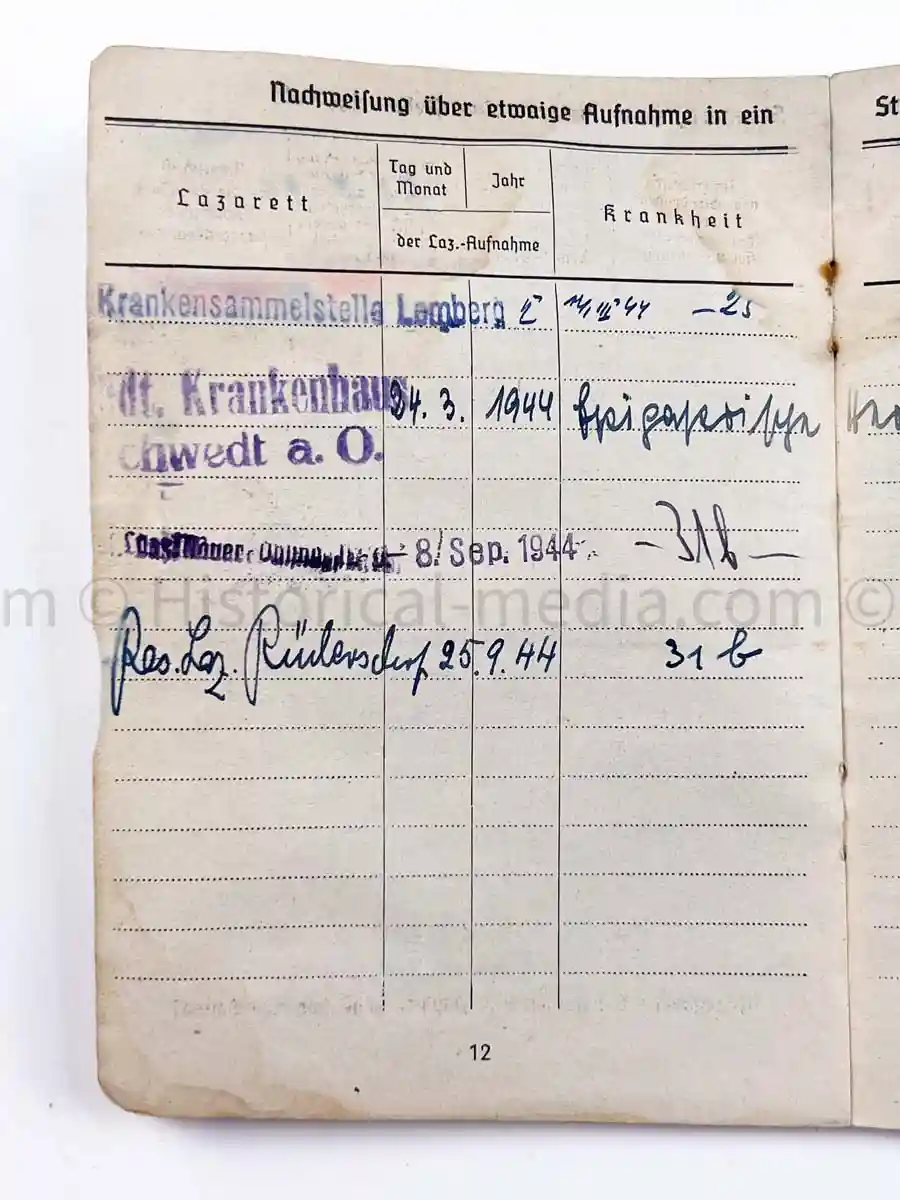 Nachweisung über etwaige Aufnahme in ein
St
Lazarett
Tag und Monat
Jahr
der Laz.-Aufnahme
Krankheit
Krankensammelstelle Lemberg
44 – 25
dt. Krankenhaus 24. 3. 1944 Epigastrische
chwedt a. O.
8. Sep. 1944 – 31b –
m © Historical-media.com ©
Res. Laz. Rüdersdorf 25.9.44 31 b
12